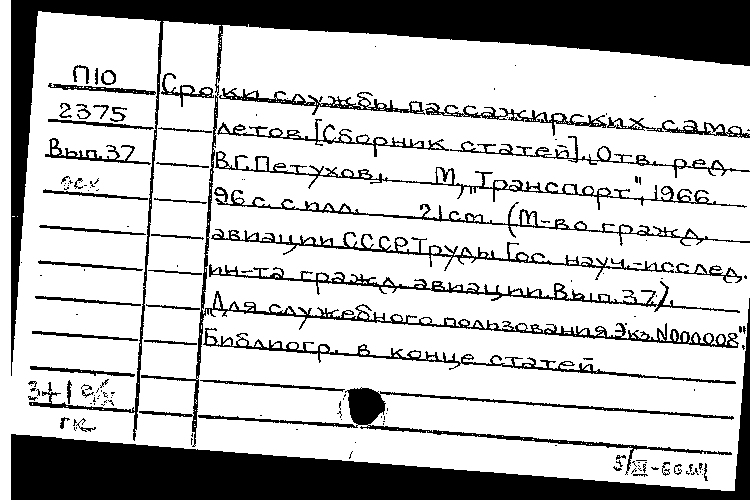 П10
2375
Вып.37
Сроки службы пассажирских само-
летов. [Сборник статей]. Отв. ред.
В.Г.Петухов. М., „Транспорт", 1966.
96 с. с илл. 21 см. (М-во гражд.
авиации СССР. Труды Гос. науч.-исслед.
ин-та гражд. авиации. Вып. 37).
„Для служебного пользования. Экз. N000008".
Библиогр. в конце статей.
3+1
гк
5/XII-66